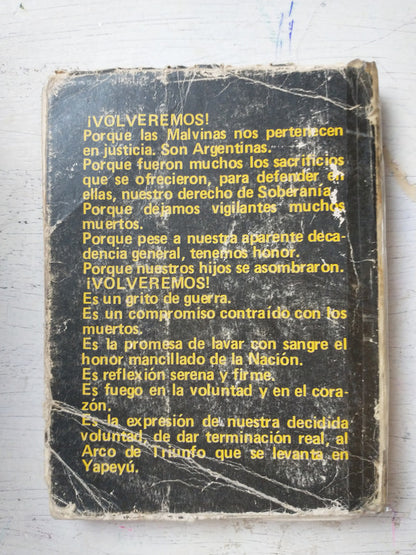 ¡VOLVEREMOS!
Porque las Malvinas nos pertenecen
en justicia. Son Argentinas.
Porque fueron muchos los sacrificios
que se ofrecieron, para defender en
ellas, nuestro derecho de Soberanía.
Porque dejamos vigilantes muchos
muertos.
Porque pese a nuestra aparente deca-
dencia general, tenemos honor.
Porque nuestros hijos se asombraron.
¡VOLVEREMOS!
Es un grito de guerra.
Es un compromiso contraído con los
muertos.
Es la promesa de lavar con sangre el
honor mancillado de la Nación.
Es reflexión serena y firme.
Es fuego en la voluntad y en el cora-
zón.
Es la expresión de nuestra decidida
voluntad, de dar terminación real, al
Arco de Triunfo que se levanta en
Yapeyú.